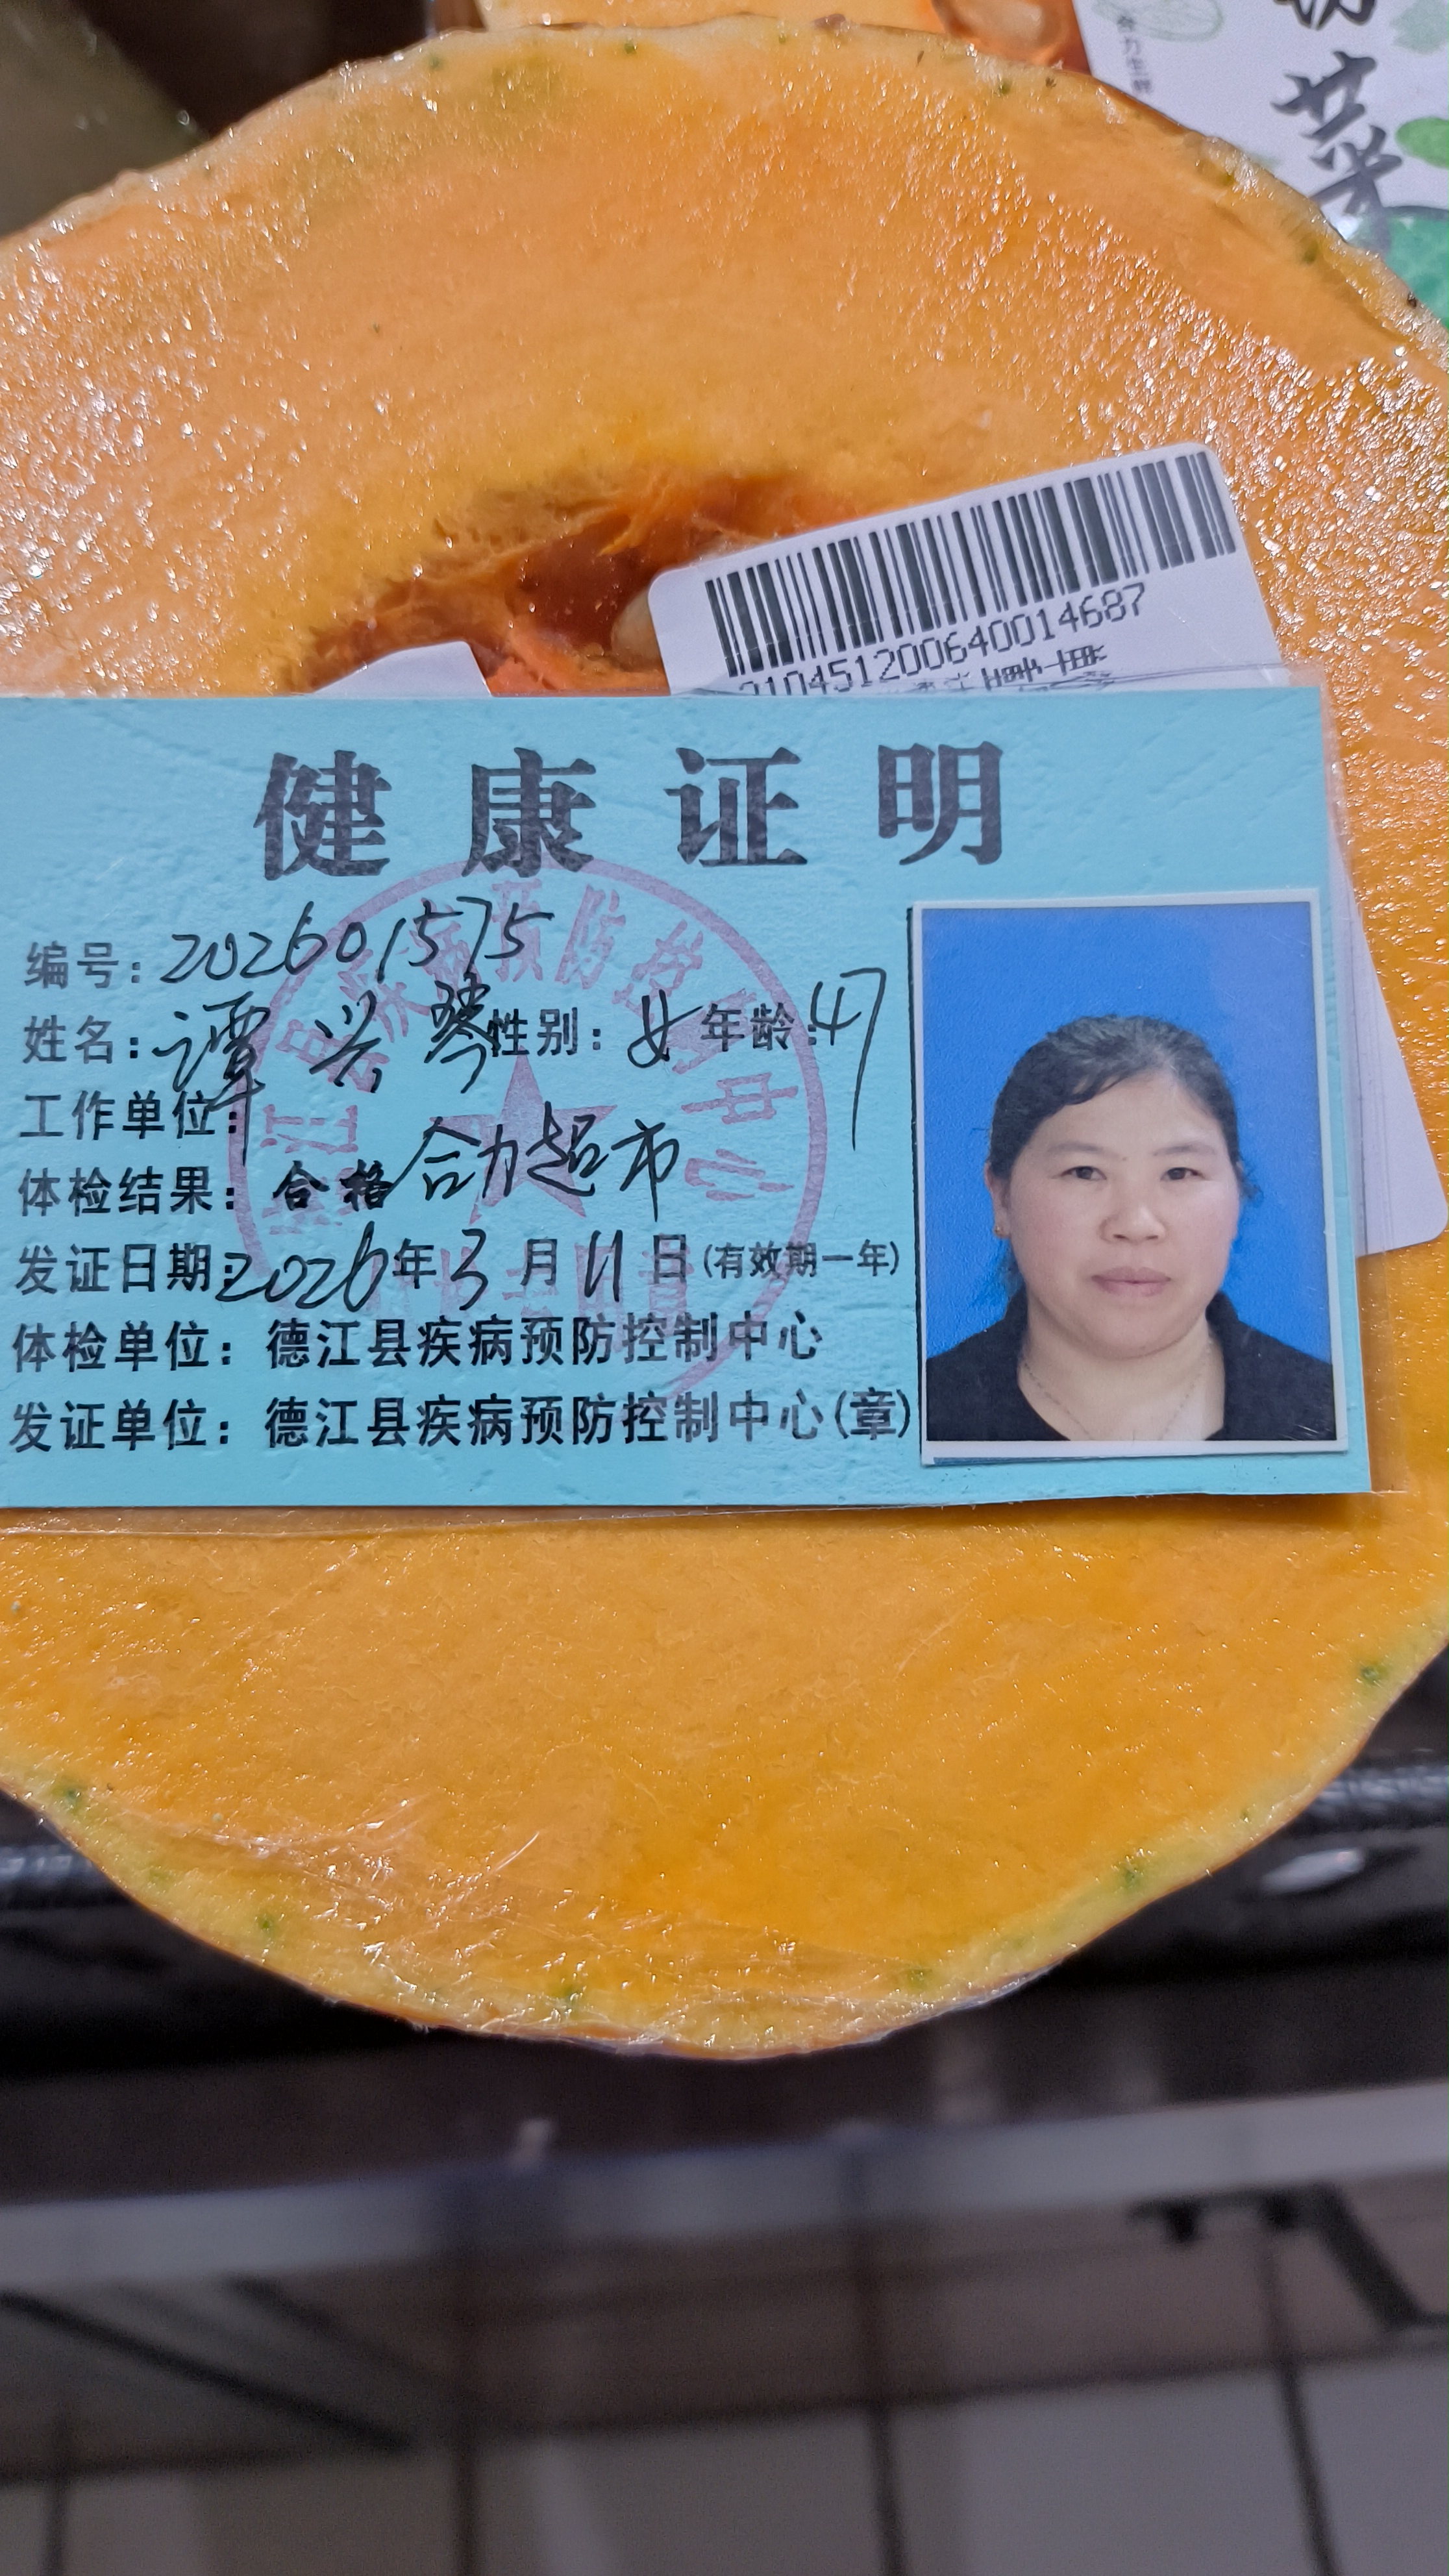 菜
210451200640014687
健康证明
编号：202601575
姓名：谭兴琴 性别：女 年龄：47
工作单位：合力超市
体检结果：合格
发证日期：2026年3月11日(有效期一年)
体检单位：德江县疾病预防控制中心
发证单位：德江县疾病预防控制中心(章)
德江县疾病预防控制中心